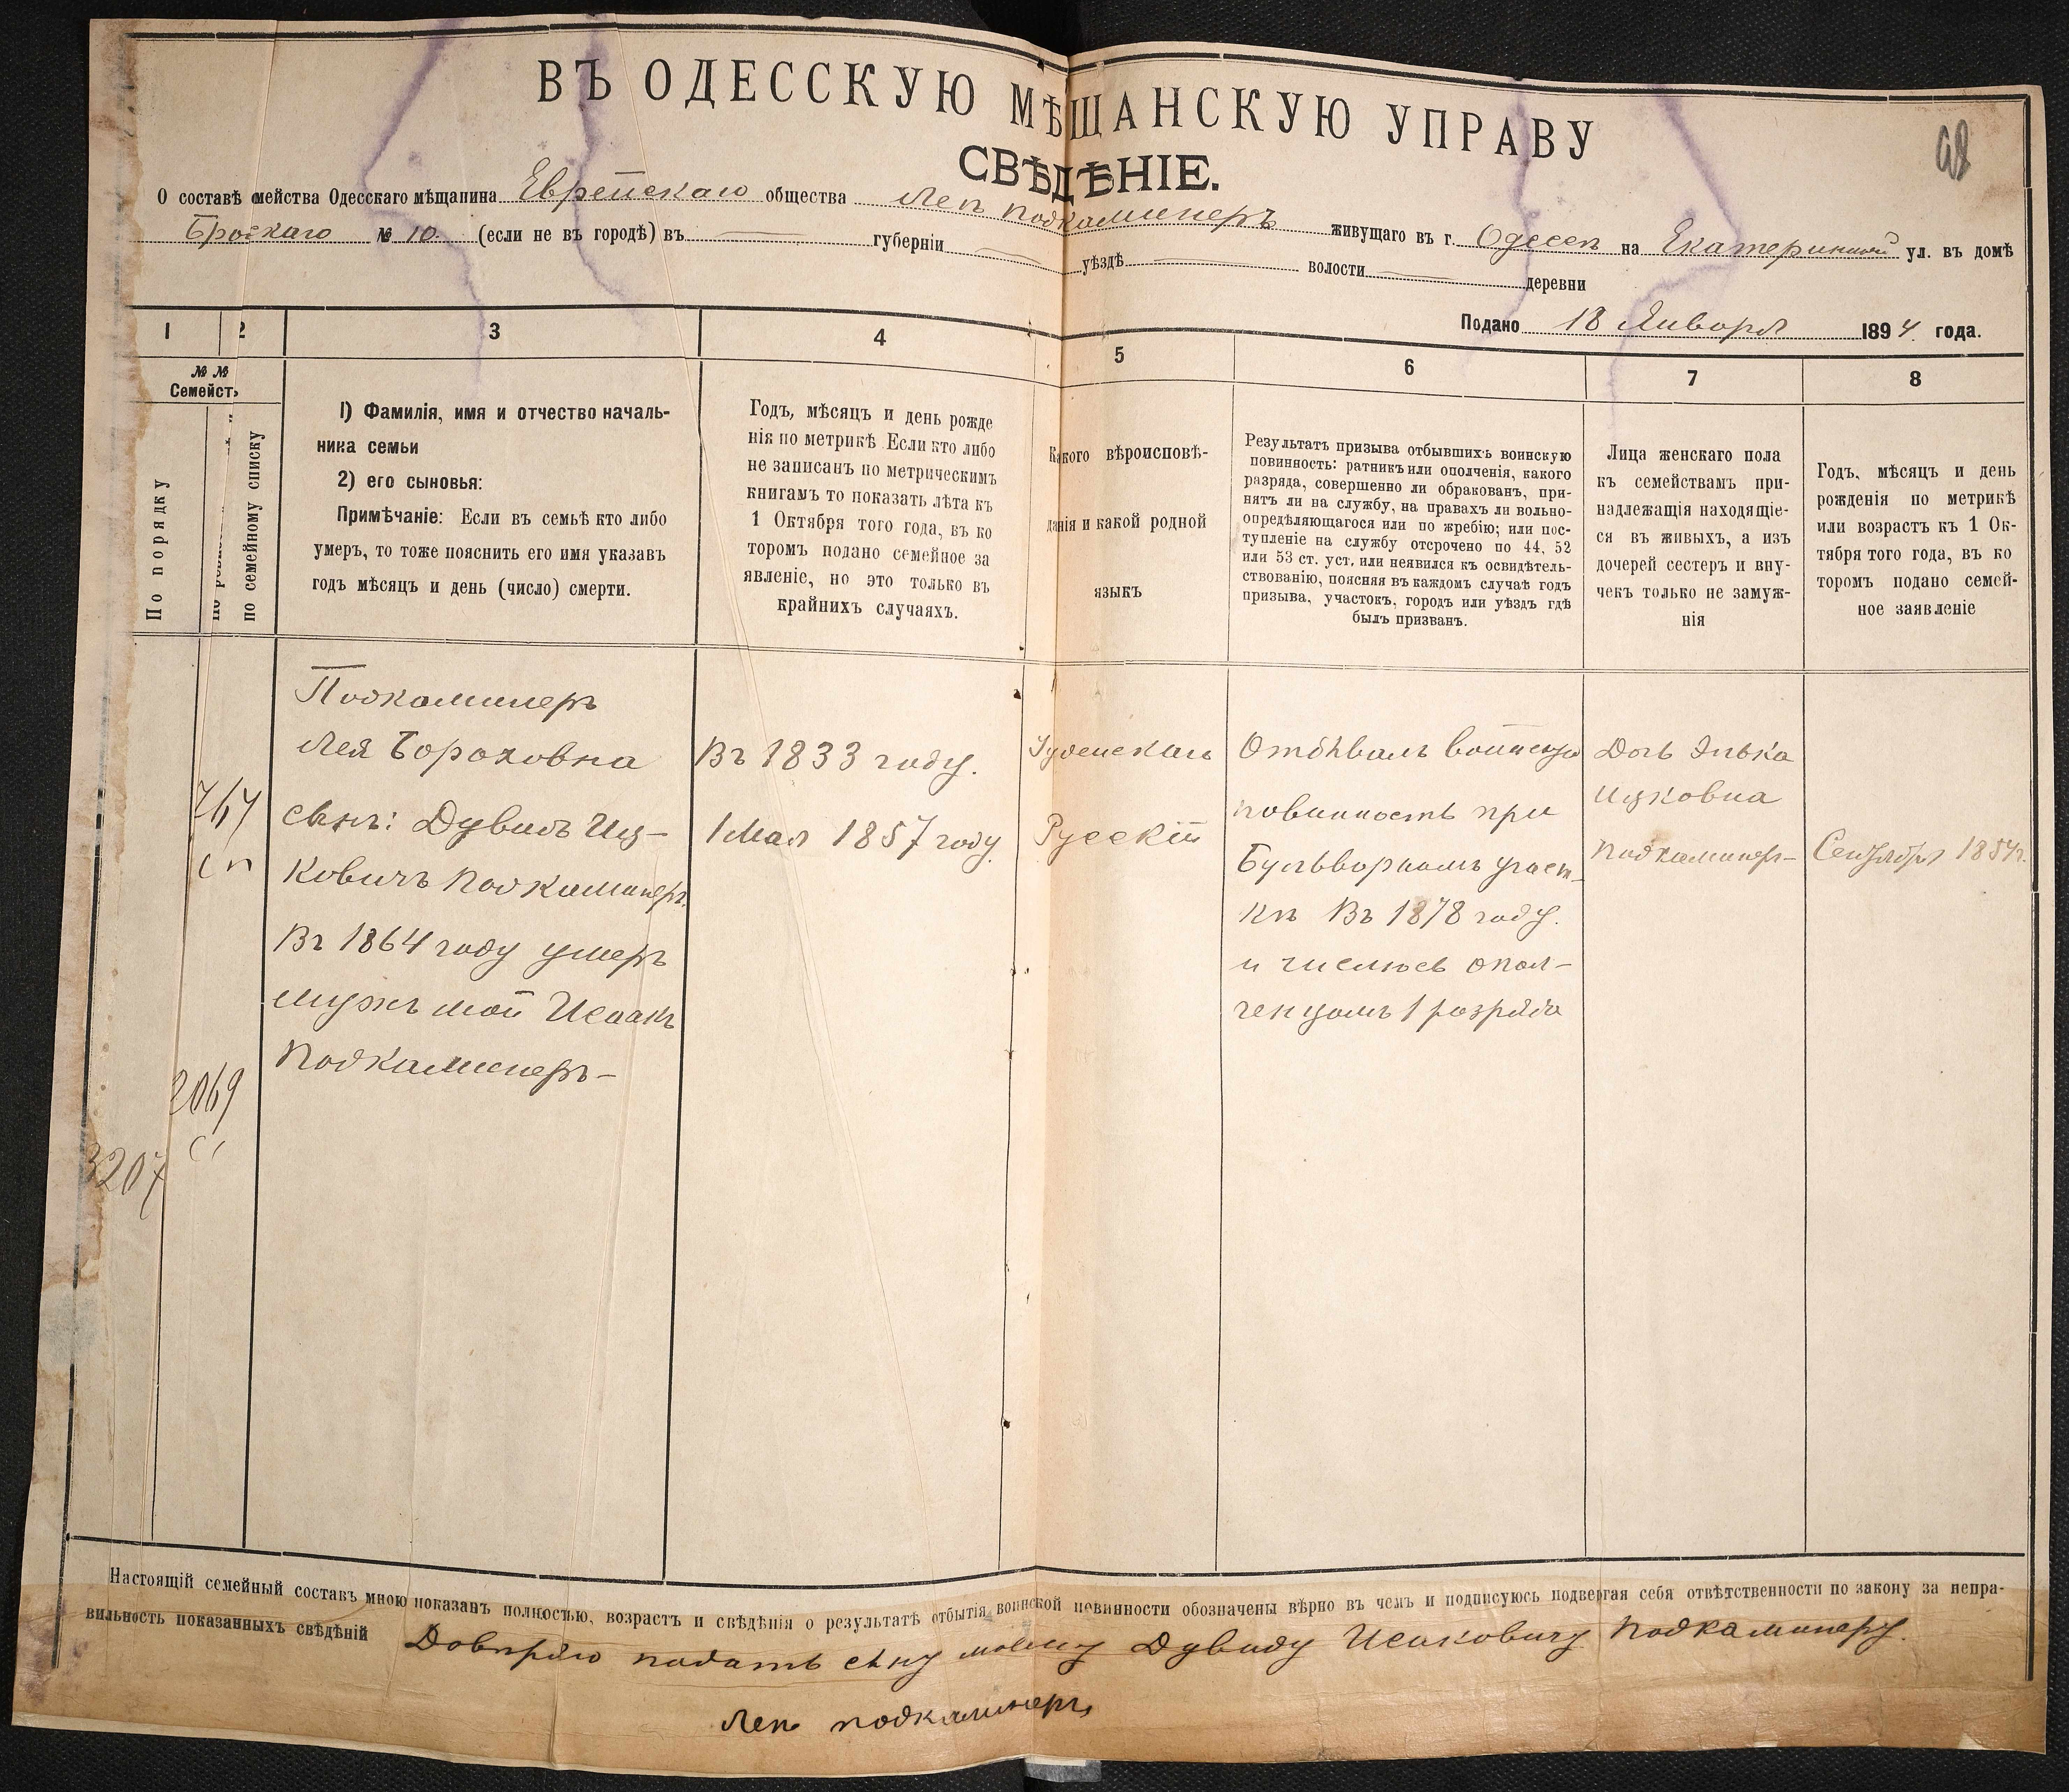 ВЪ ОДЕССКУЮ МѢЩАНСКУЮ УПРАВУ
СВѢДѢНІЕ.
О составѣ семейства Одесскаго мѣщанина Еврейскаго общества Леи Подкаминеръ живущаго въ г. Одессѣ на Екатерининской ул. въ домѣ
Бродскаго № 10 (если не въ городѣ) въ губерніи уѣздѣ волости деревни
Подано 18 Января 1894 года.
1 2 3 4 5 6 7 8
№ №
Семействъ
По порядку
по семейному списку
1) Фамилія, имя и отчество началь-
ника семьи
2) его сыновья:
Примѣчаніе: Если въ семьѣ кто либо
умеръ, то тоже пояснить его имя указавъ
годъ мѣсяцъ и день (число) смерти.
Годъ, мѣсяцъ и день рожде
нія по метрикѣ Если кто либо
не записанъ по метрическимъ
книгамъ то показать лѣта къ
1 Октября того года, въ ко
торомъ подано семейное за
явленіе, но это только въ
крайнихъ случаяхъ.
Какого вѣроисповѣ-
данія и какой родной
языкъ
Результатъ призыва отбывшихъ воинскую
повинность: ратникъ или ополченія, какого
разряда, совершенно ли обракованъ, при-
нятъ ли на службу, на правахъ ли вольно-
опредѣляющагося или по жребію; или пос-
тупленіе на службу отсрочено по 44, 52
или 53 ст. уст. или неявился къ освидѣтель-
ствованію, поясняя въ каждомъ случаѣ годъ
призыва, участокъ, городъ или уѣздъ гдѣ
былъ призванъ.
Лица женскаго пола
къ семействамъ при-
надлежащія находящіе-
ся въ живыхъ, а изъ
дочерей сестеръ и вну-
чекъ только не замуж-
нія
Годъ, мѣсяцъ и день
рожденія по метрикѣ
или возрастъ къ 1 Ок-
тября того года, въ ко
торомъ подано семей-
ное заявленіе
Подкаминеръ
Лея Бороховна
сынъ: Дувидъ Иц-
ковичъ Подкаминеръ.
Въ 1864 году умеръ
мужъ мой Исаакъ
Подкаминеръ-
2069
3207
Въ 1833 году.
1 Мая 1857 году.
Іудейскаго
Русскій
Отбывалъ воинскую
повинность при
Бульворномъ участ-
кѣ Въ 1878 году.
и числюсь опол-
ченцомъ 1 розряда
Дочь Элька
Ицковна
Подкаминер-
Сентября 1854г.
Настоящій семейный составъ мною показанъ полностью, возрастъ и свѣдѣнія о результатѣ отбытія воинской повинности обозначены вѣрно въ чемъ и подписуюсь подвергая себя отвѣтственности по закону за непра-
вильность показанныхъ свѣдѣній Довѣряю подать сыну моему Дувиду Исаковичу Подкаминеру.
Леѣ подкаминеръ